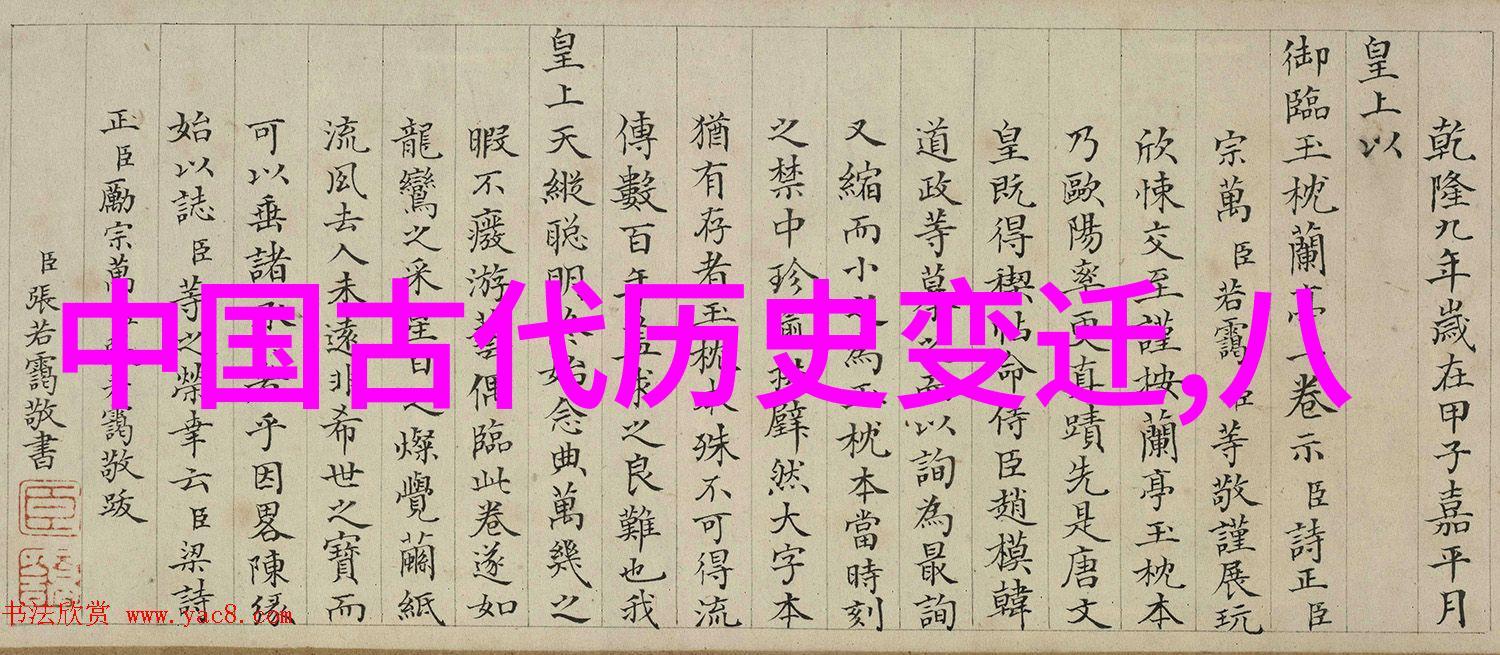 乾隆九年歲在甲子嘉平月
皇上以
御臨玉枕蘭亭一卷示臣詩正臣
宗萬臣若靄臣等敬謹展玩
欣悚交至謹按蘭亭玉枕本
乃歐陽率更真蹟先是唐文
皇既得禊帖命侍臣趙模韓
道政等摹之而以詢為最詢
又縮而小之為玉枕本當時刻
之禁中珍踰拱璧然大字本
猶有存者玉枕本殊不可得流
傳數百年求之良難也我
皇上天縱聰明終始念典萬幾之
暇不癈游藝偶臨此卷遂如
龍鸞之采星日之燦覺繭紙
流風去人未遠非希世之寶而
可以垂諸永乎因畧陳緣
始以誌臣等之榮幸云臣梁詩
正臣勵宗萬臣若靄敬跋
臣張若靄敬書
臣
中国古代历史变迁,八
书法欣赏 www.yac8.com